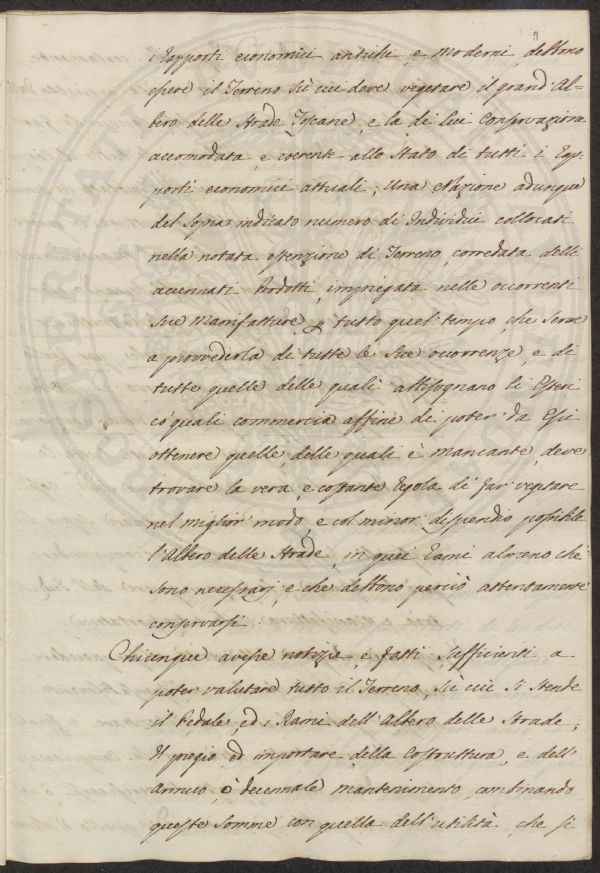 9
i Rapporti economici antichi, e Moderni, debbono
essere il Terreno su cui deve vegetare il grand'Al=
bero delle Strade Toscane, e la di lui Conservazione
accomodata, e coerente allo Stato di tutti i Rap-
porti economici attuali; Una Nazione adunque
del sopra indicato numero di Individui collocati
nella notata estenzione di Terreno, corredata delli
accennati Prodotti, impiegata nelle occorrenti
sue Manifatture, p tutto quel tempo, che serve
a provvederla di tutte le sue occorrenze, e di
tutte quelle delle quali abbisognano li Esteri
co' quali commercia affine di poter da Essi
ottenere quelle, delle quali è mancante, deve
trovare la vera, e costante Regola di far vegetare
nel miglior modo, e col minor dispendio possibile
l'Albero delle Strade, in quei Rami almeno che
sono necessarj, e che debbono perciò attentamente
conservarsi.
Chiunque avesse notizie, e fatti sufficienti a
poter valutare tutto il Terreno, su cui si stende
il Pedale, ed i Rami dell'Albero delle Strade,
Il pregio, ed importare della Costruttura, e dell'
annuo, ò decennale mantenimento, combinando
queste somme con quella dell'utilità, che si